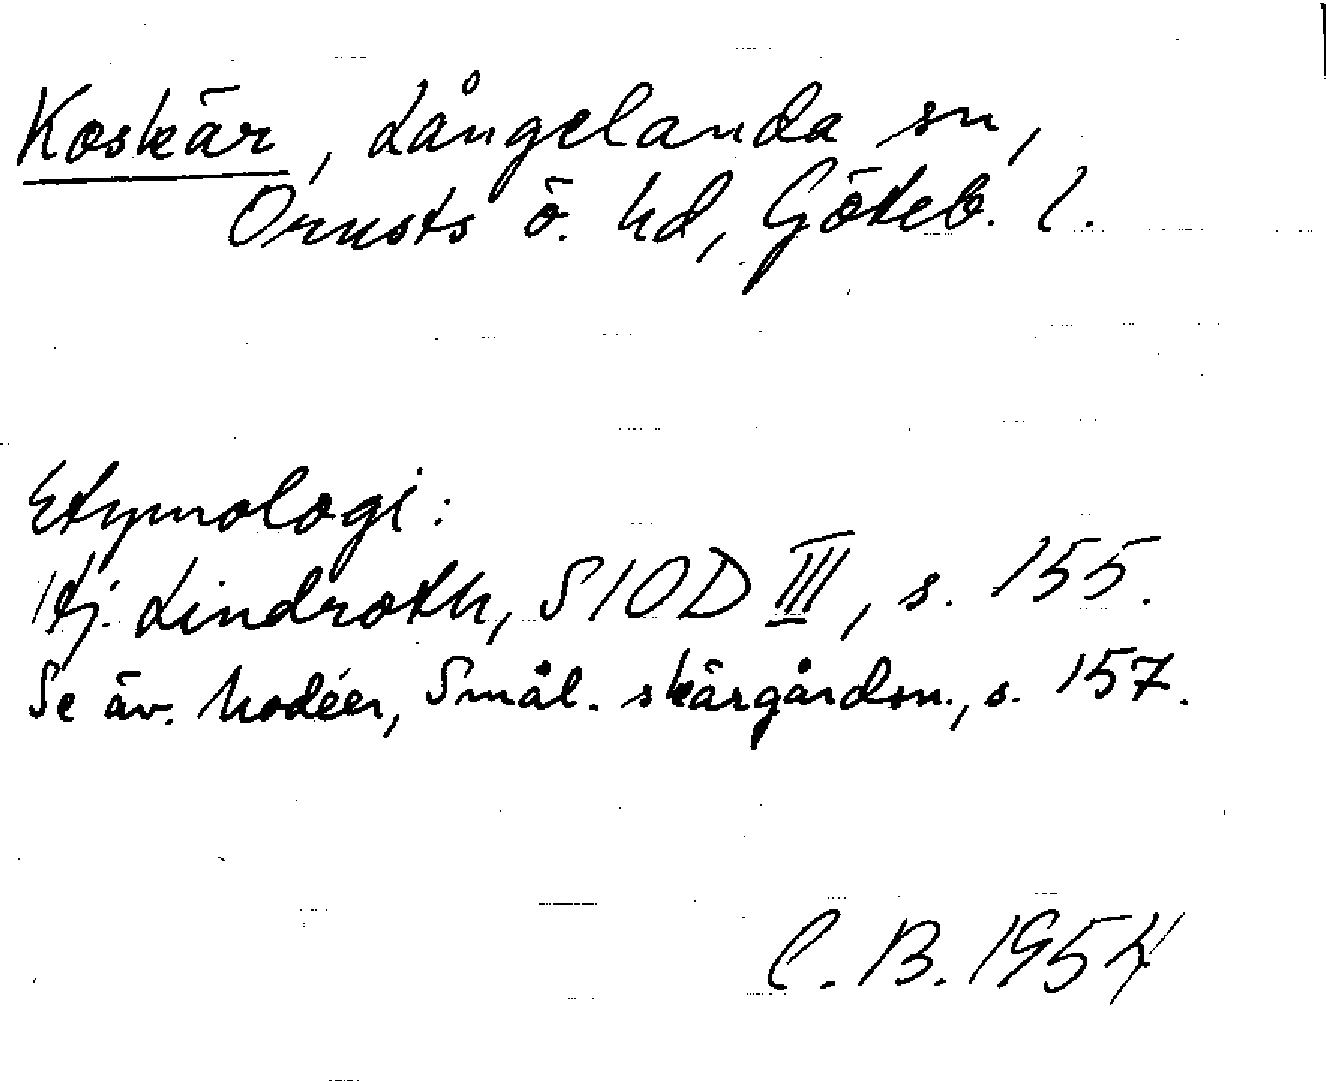 Koskär, Långelanda sn,
Orusts ö. hd, Göteb. l.
Etymologi:
Hj. Lindroth, SIOD III, s. 155.
Se äv. Modéer, Smål. skärgårdsn., s. 157.
C. B. 1954